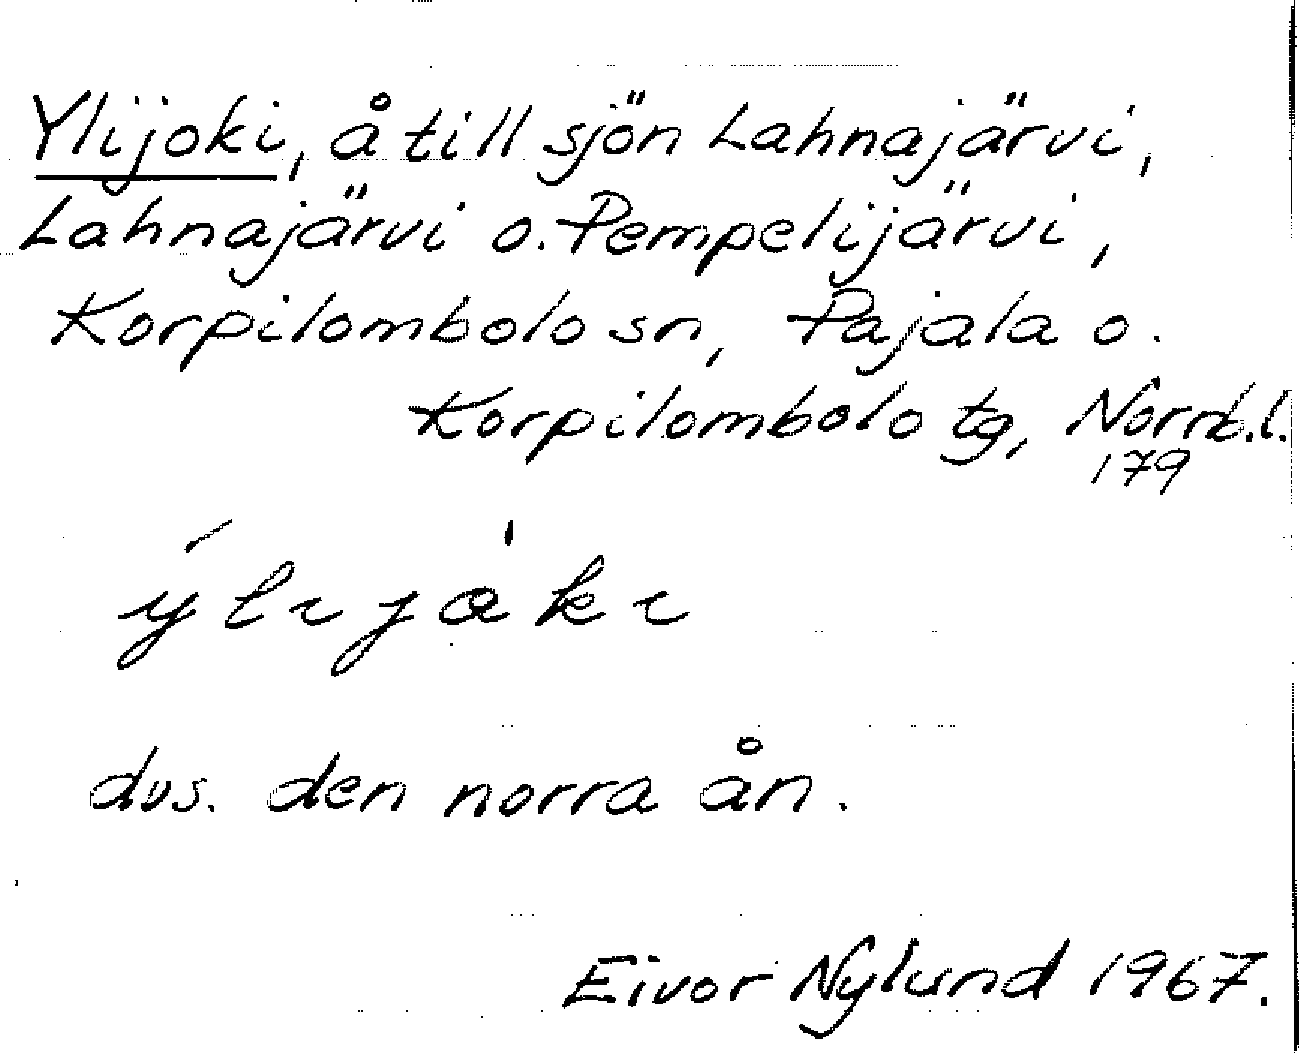 Ylijoki, å till sjön Lahnajärvi,
Lahnajärvi o. Pempelijärvi,
Korpilombolo sn, Pajala o.
Korpilombolo tg, Norrb.l.
179
dvs. den norra ån.
Eivor Nylund 1967.